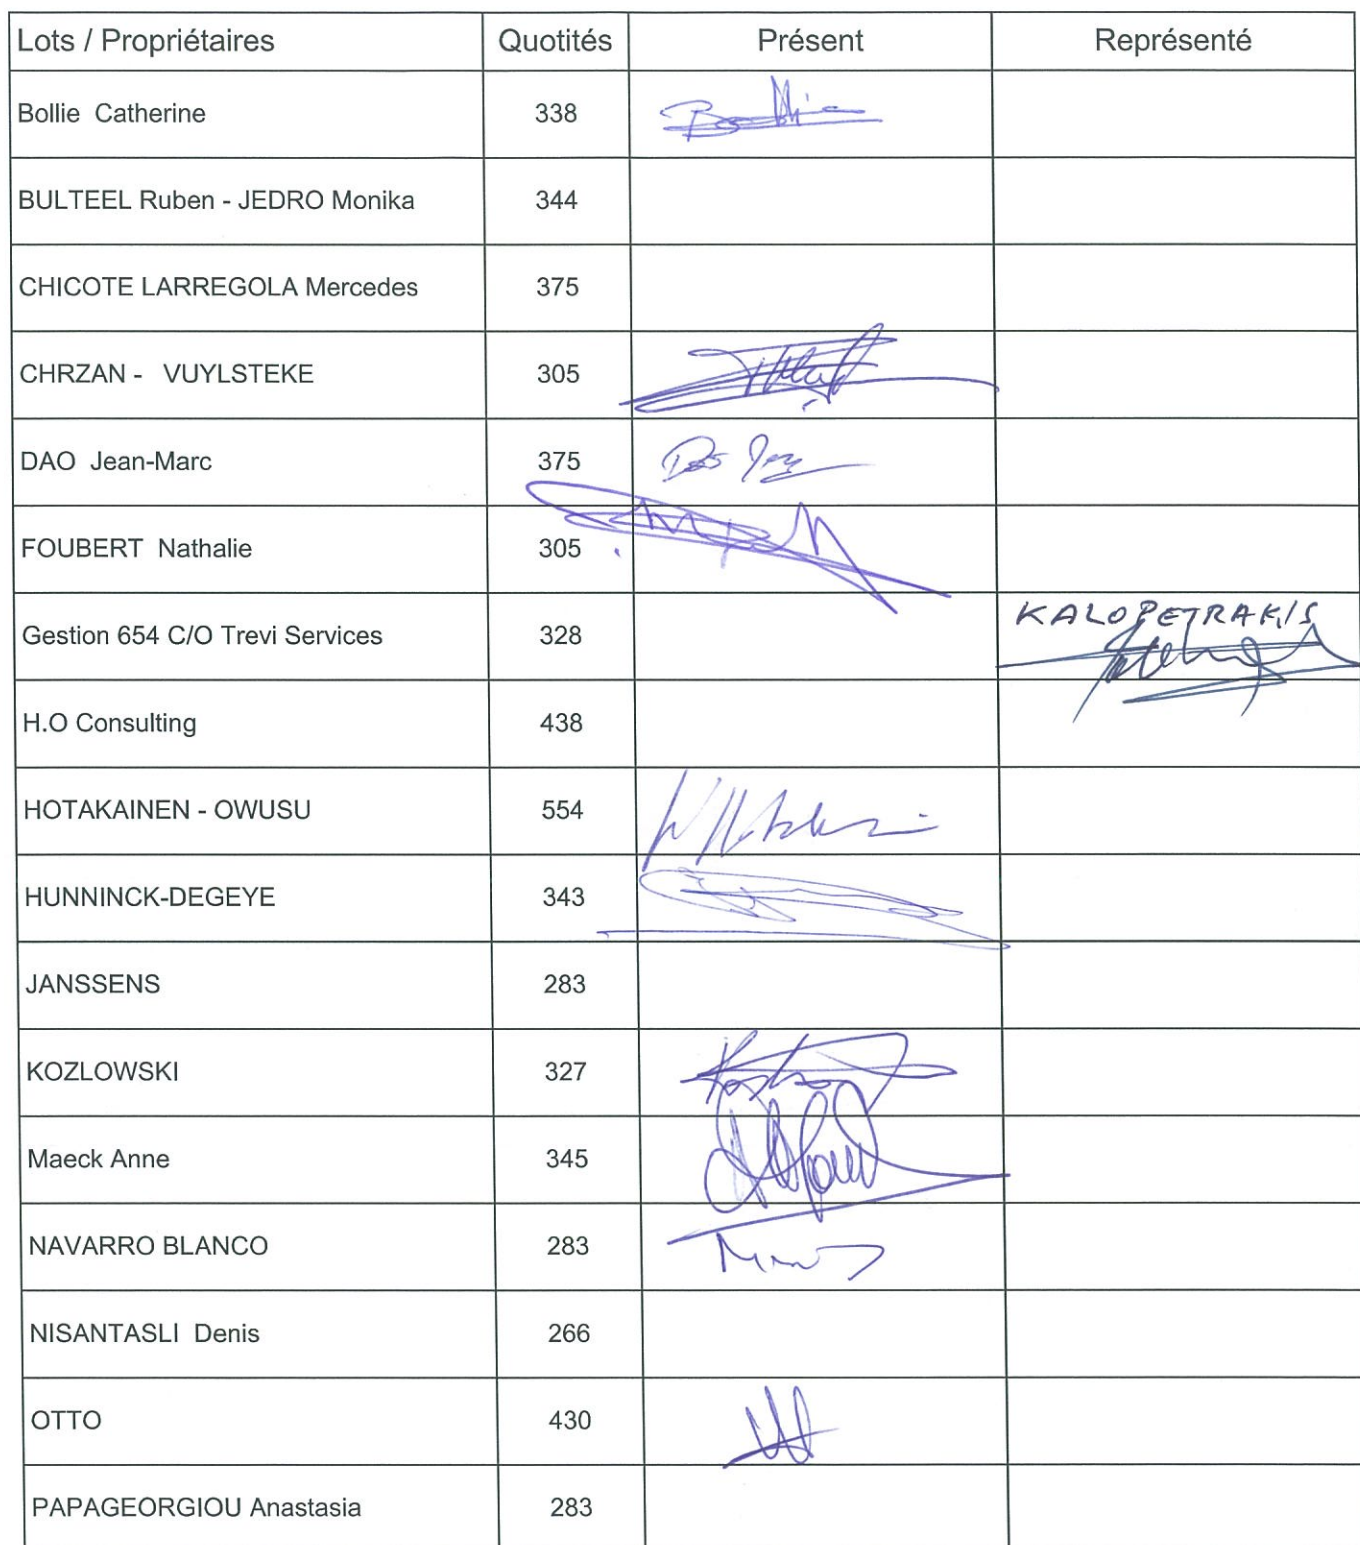 Lots / Propriétaires Quotités Présent Représenté
Bollie Catherine 338
BULTEEL Ruben - JEDRO Monika 344
CHICOTE LARREGOLA Mercedes 375
CHRZAN - VUYLSTEKE 305
DAO Jean-Marc 375
FOUBERT Nathalie 305
Gestion 654 C/O Trevi Services 328 KALOPETRAKIS
H.O Consulting 438
HOTAKAINEN - OWUSU 554
HUNNINCK-DEGEYE 343
JANSSENS 283
KOZLOWSKI 327
Maeck Anne 345
NAVARRO BLANCO 283
NISANTASLI Denis 266
OTTO 430
PAPAGEORGIOU Anastasia 283